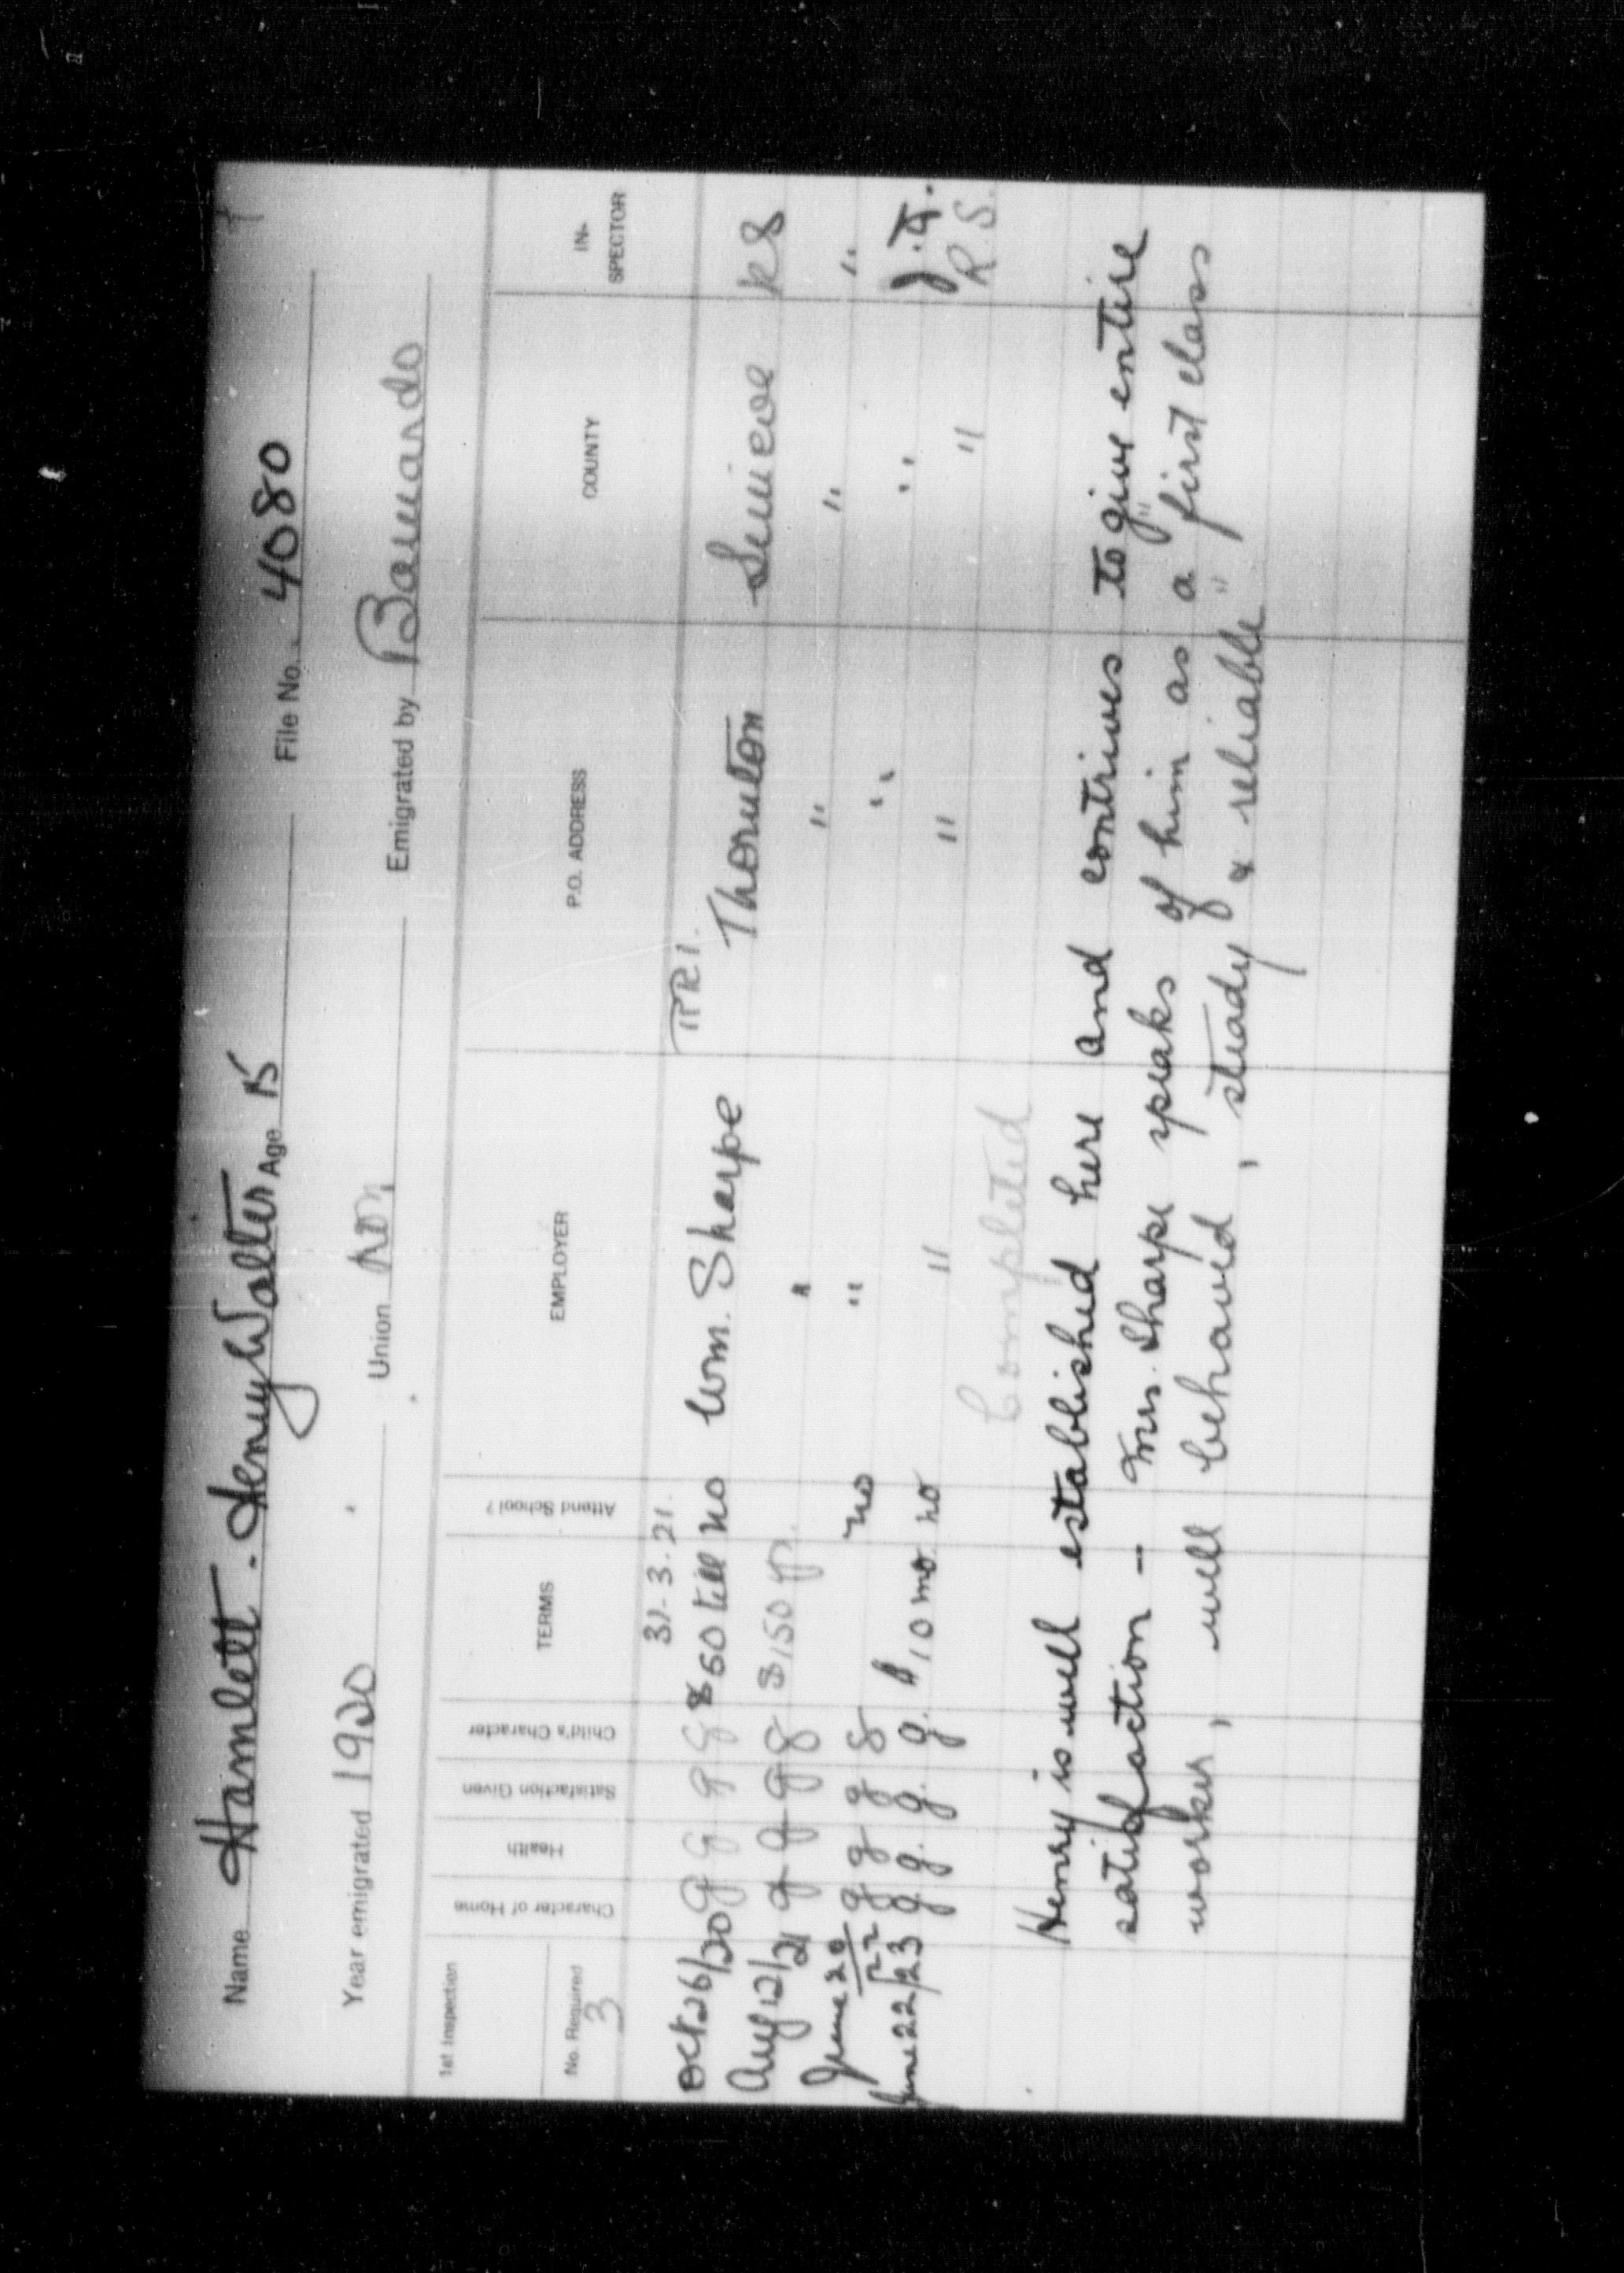 Name Hamlett. Henry Walter Age 15 File No. 4080
Year emigrated 1920 Union Non Emigrated by Barnardo
1st Inspection
No. Required
3
Character of Home Health Satisfaction Given Child's Character TERMS Attend School? EMPLOYER P.O. ADDRESS COUNTY IN-SPECTOR
31-3-21. RR1.
Oct 26/20 g g g g $60 till no Wm. Sharpe Thornton Simcoe
Aug 12/21 g g g g $150 " " "
June 20/22 g g g g no " " "
June 22/23 g. g. g. g. $10 mo no " " " R.S.
Completed
Henry is well established here and contrives to give entire
satisfaction - Mrs. Sharpe speaks of him as a "first class
worker, well behaved, steady & reliable"